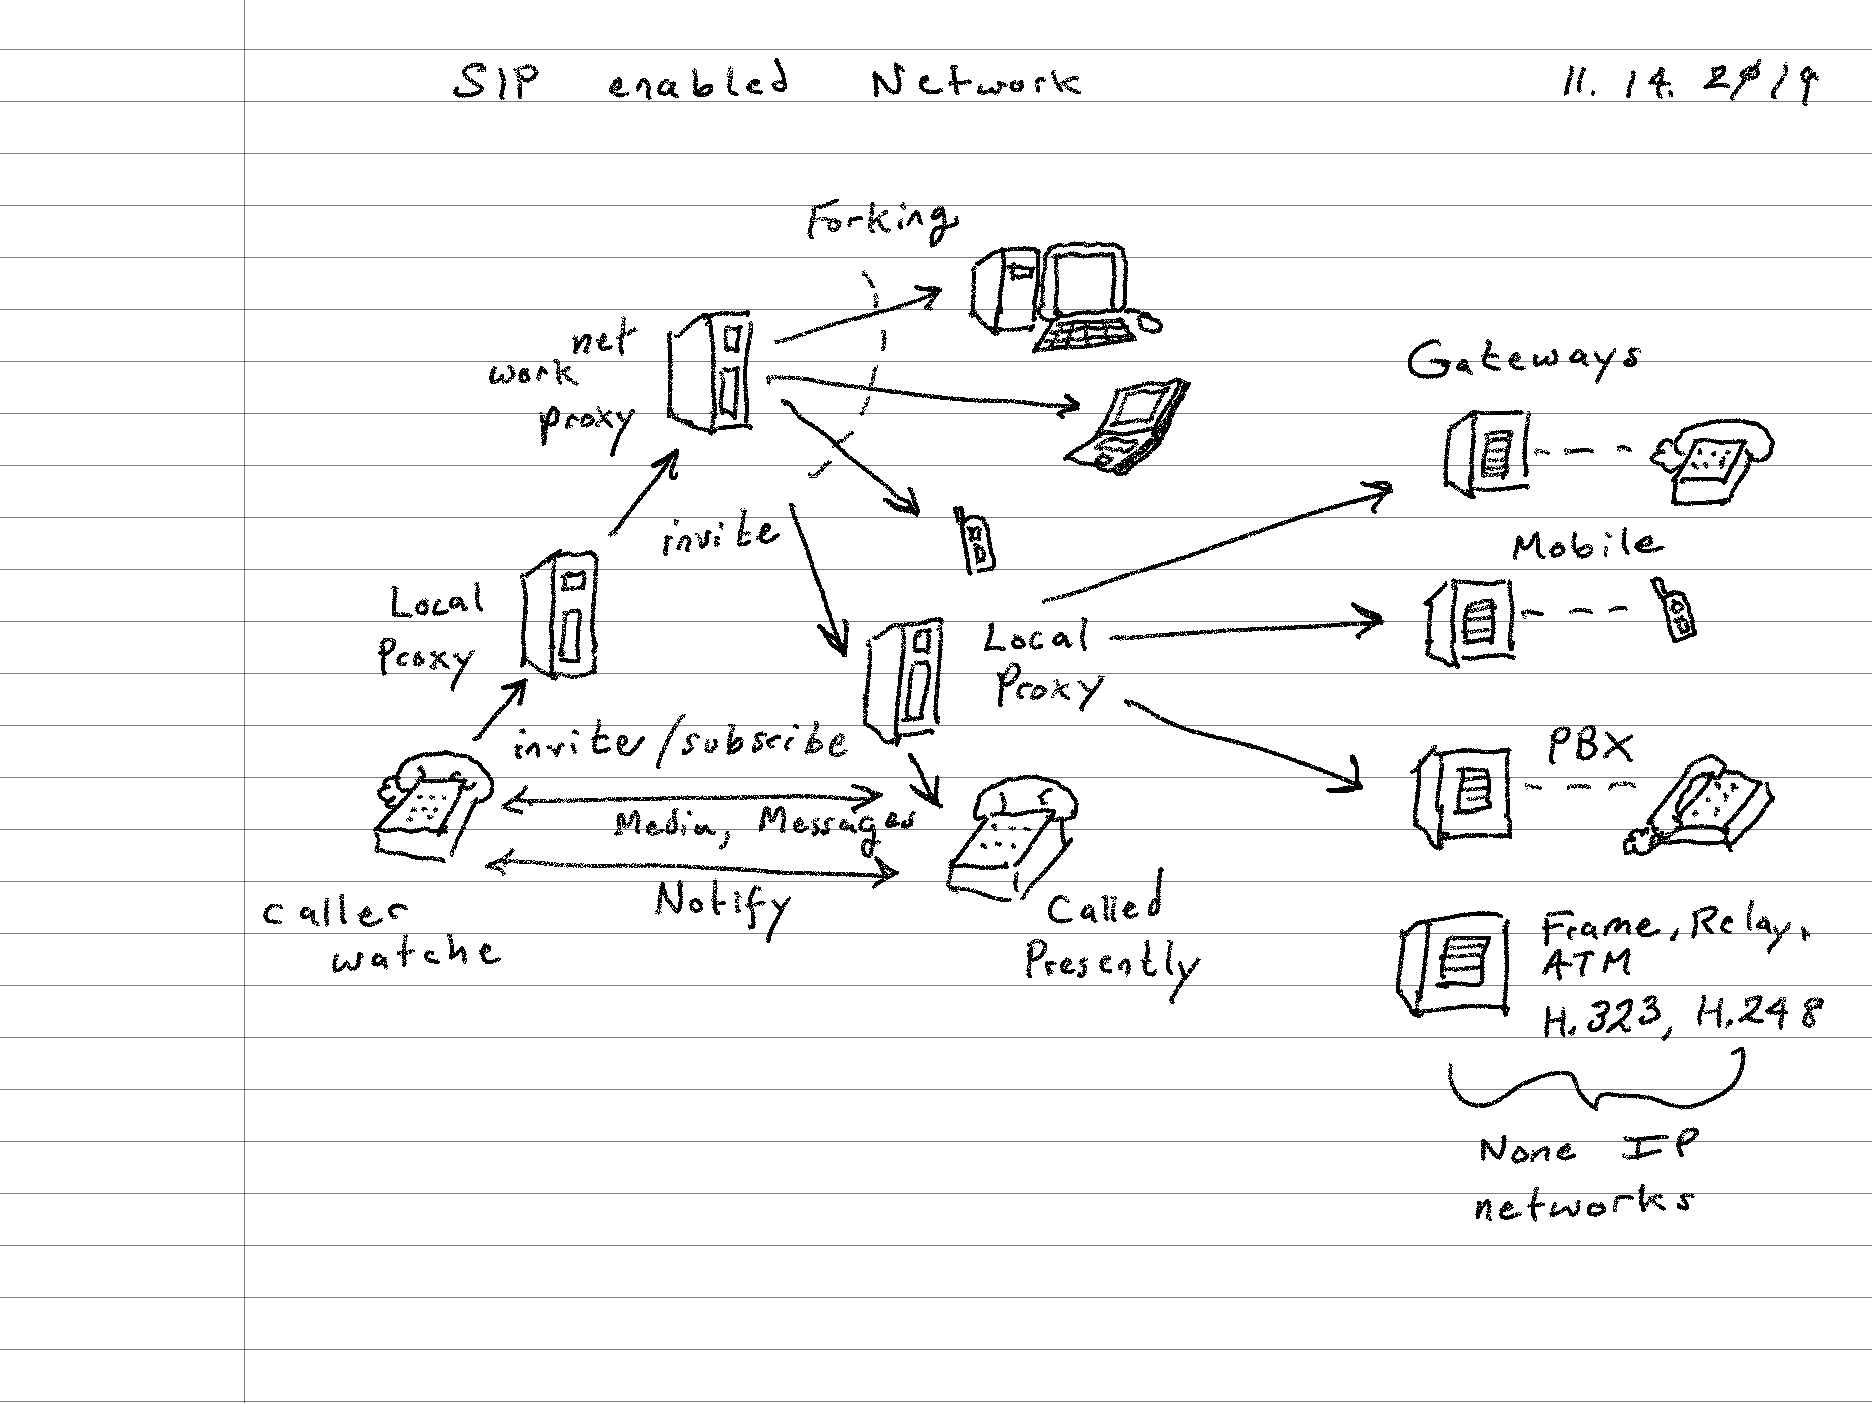 SIP enabled Network
11. 14. 2019
Forking
net
work
proxy
Gateways
invite
Mobile
Local
Proxy
Local
Proxy
invite/subscribe
PBX
Media, Messages
Notify
caller
watche
Called
Presently
Frame, Relay,
ATM
H.323, H.248
None IP
networks